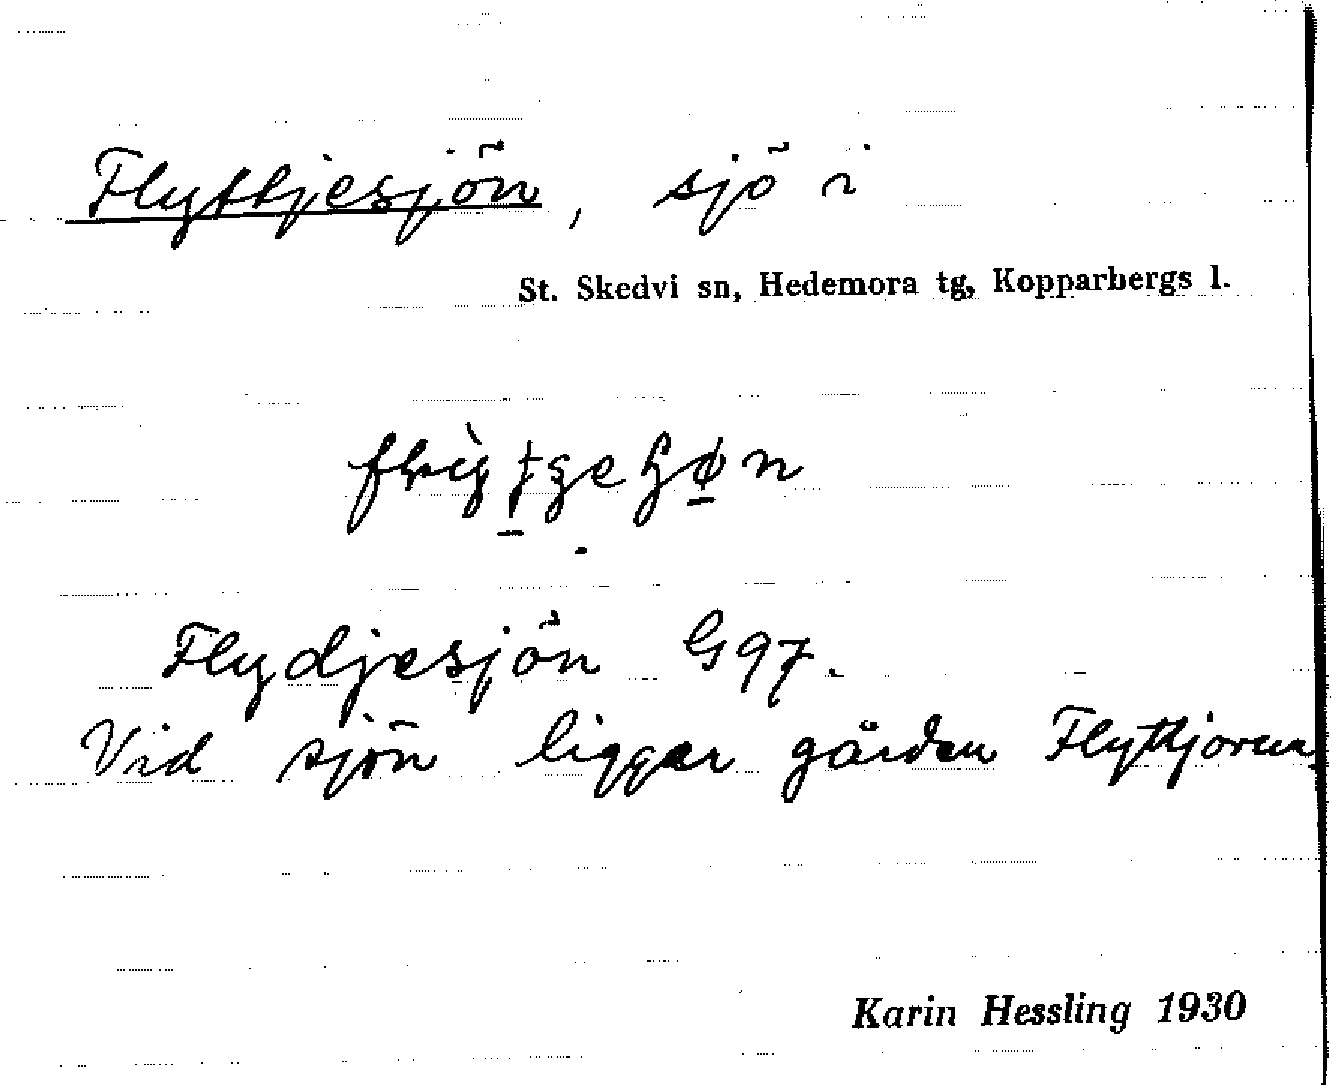 Flyttjesjön, sjö i
St. Skedvi sn, Hedemora tg, Kopparbergs l.
Flydjesjön G97.
Vid sjön ligger gården Flyttjoren
Karin Hessling 1930